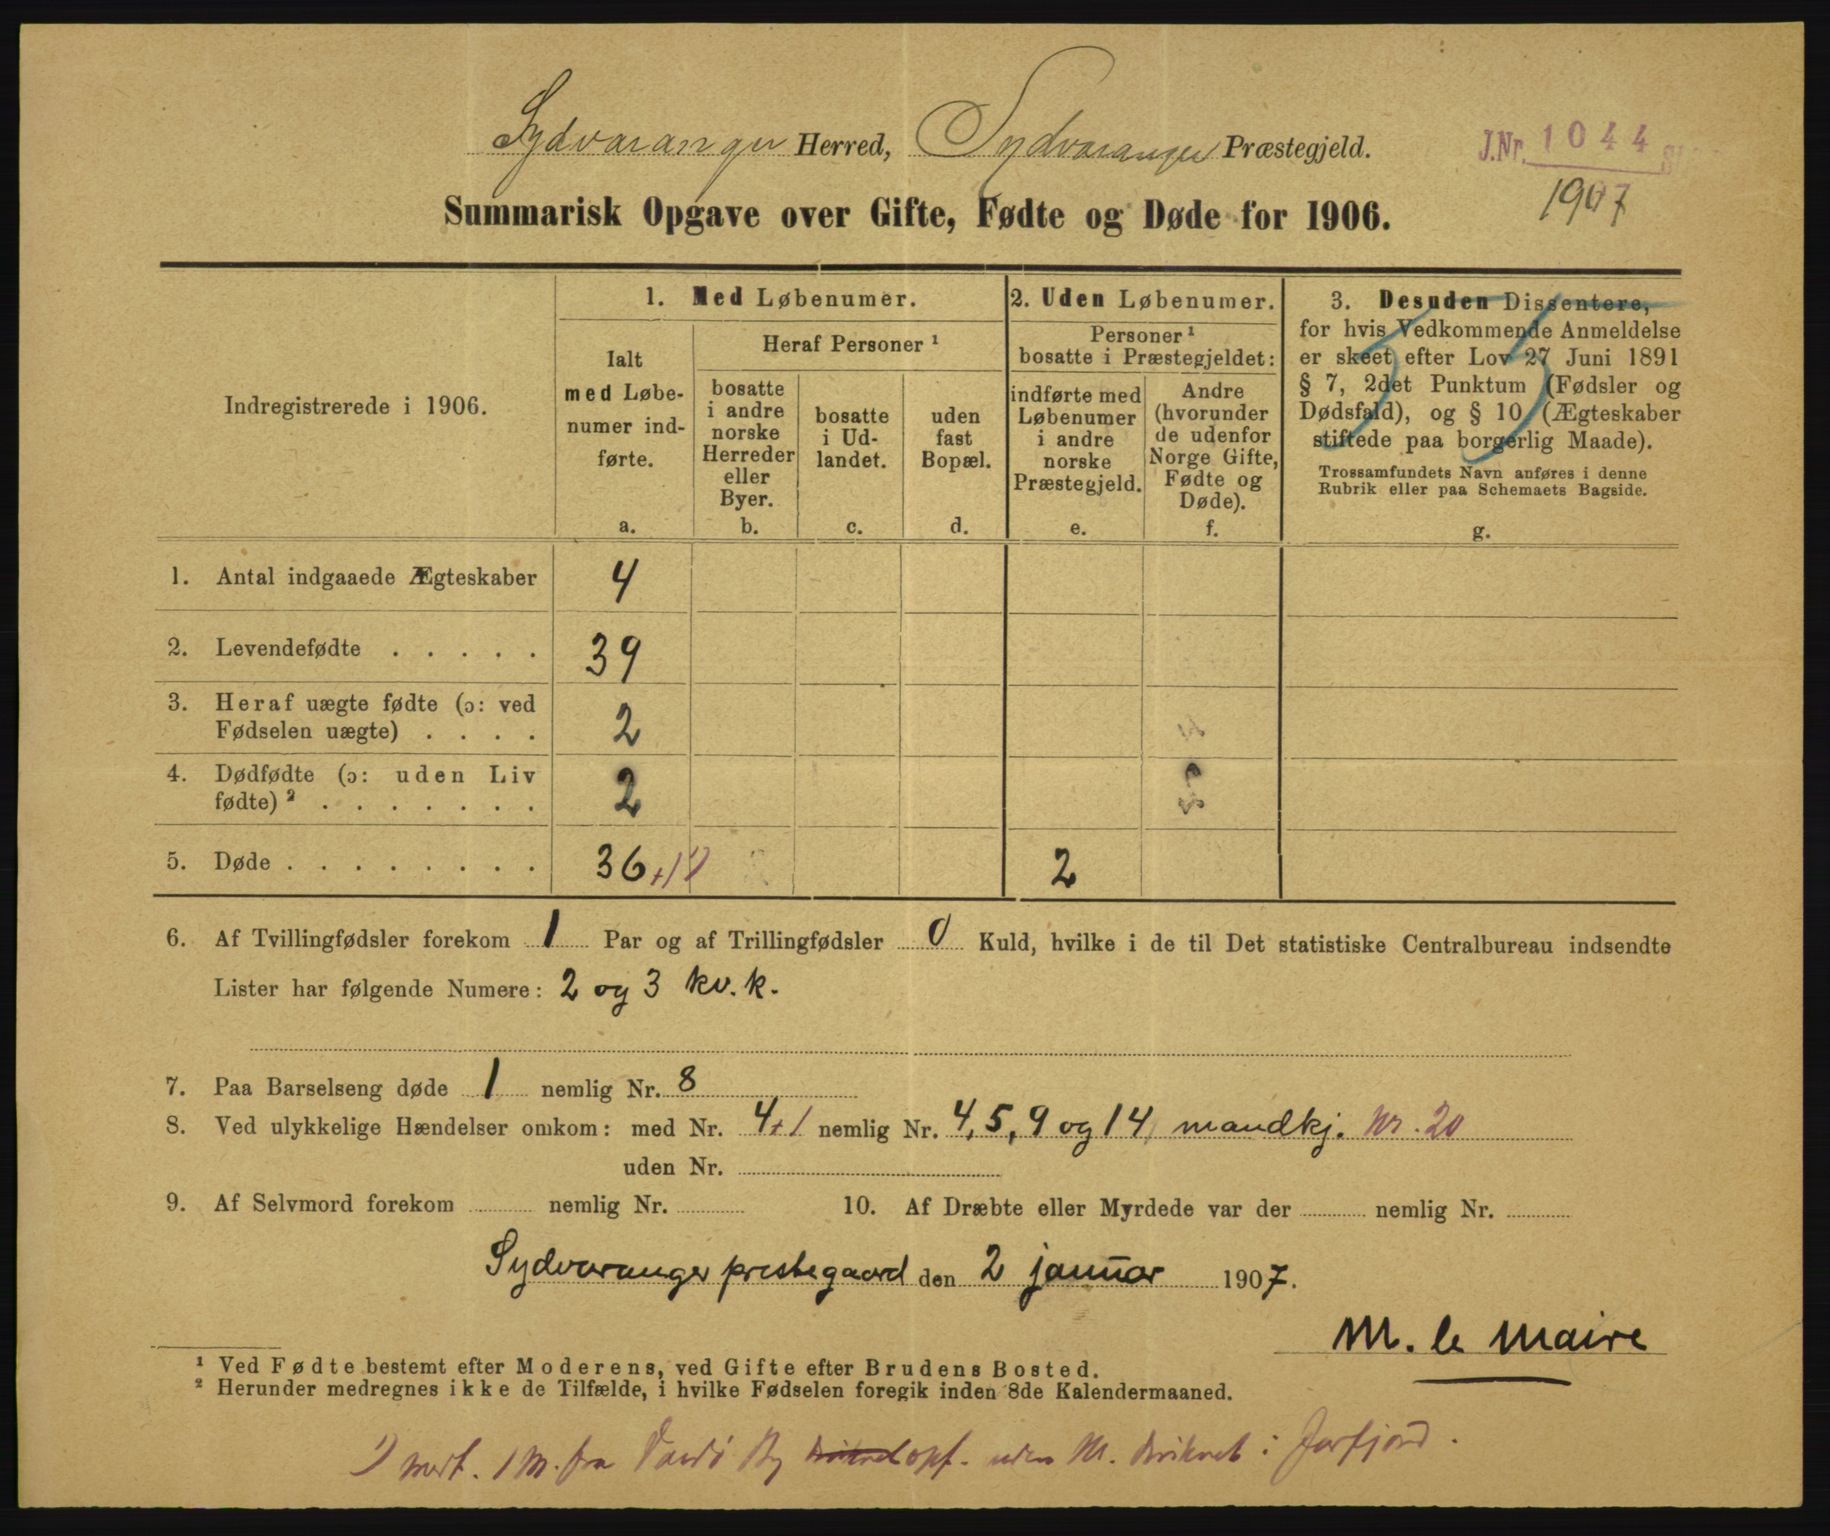 Sydvaranger Herred, Sydvaranger Præstegjeld.
J.Nr. 1044
1907
Summarisk Opgave over Gifte, Fødte og Døde for 1906.
Indregistrerede i 1906.
1. Med Løbenumer.
Ialt
med Løbe-
numer ind-
førte.
a.
Heraf Personer ¹
bosatte
i andre
norske
Herreder
eller
Byer.
b.
bosatte
i Ud-
landet.
c.
uden
fast
Bopæl.
d.
2. Uden Løbenumer.
Personer ¹
bosatte i Præstegjeldet:
indførte med
Løbenumer
i andre
norske
Præstegjeld.
e.
Andre
(hvorunder
de udenfor
Norge Gifte,
Fødte og
Døde).
f.
3. Desuden Dissentere,
for hvis Vedkommende Anmeldelse
er skeet efter Lov 27 Juni 1891
§ 7, 2det Punktum (Fødsler og
Dødsfald), og § 10 (Ægteskaber
stiftede paa borgerlig Maade).
Trossamfundets Navn anføres i denne
Rubrik eller paa Schemaets Bagside.
g.
1. Antal indgaaede Ægteskaber 4
2. Levendefødte . . . . . 39
3. Heraf uægte fødte (ɔ: ved
Fødselen uægte) . . . . 2
4. Dødfødte (ɔ: uden Liv
fødte) ² . . . . . . . 2
5. Døde . . . . . . . . 36 +1¹) 2
6. Af Tvillingfødsler forekom 1 Par og af Trillingfødsler 0 Kuld, hvilke i de til Det statistiske Centralbureau indsendte
Lister har følgende Numere: 2 og 3 kv. k.
7. Paa Barselseng døde 1 nemlig Nr. 8
8. Ved ulykkelige Hændelser omkom: med Nr. 4+1 nemlig Nr. 4, 5, 9 og 14 mandkj. Nr. 20
uden Nr.
9. Af Selvmord forekom nemlig Nr. 10. Af Dræbte eller Myrdede var der nemlig Nr.
Sydvaranger prestegaard den 2 januar 1907.
M. le Maire
¹ Ved Fødte bestemt efter Moderens, ved Gifte efter Brudens Bosted.
² Herunder medregnes ikke de Tilfælde, i hvilke Fødselen foregik inden 8de Kalendermaaned.
1) 1 M. fra Vardø By opf. uden Nr. druknet i Jarfjord.